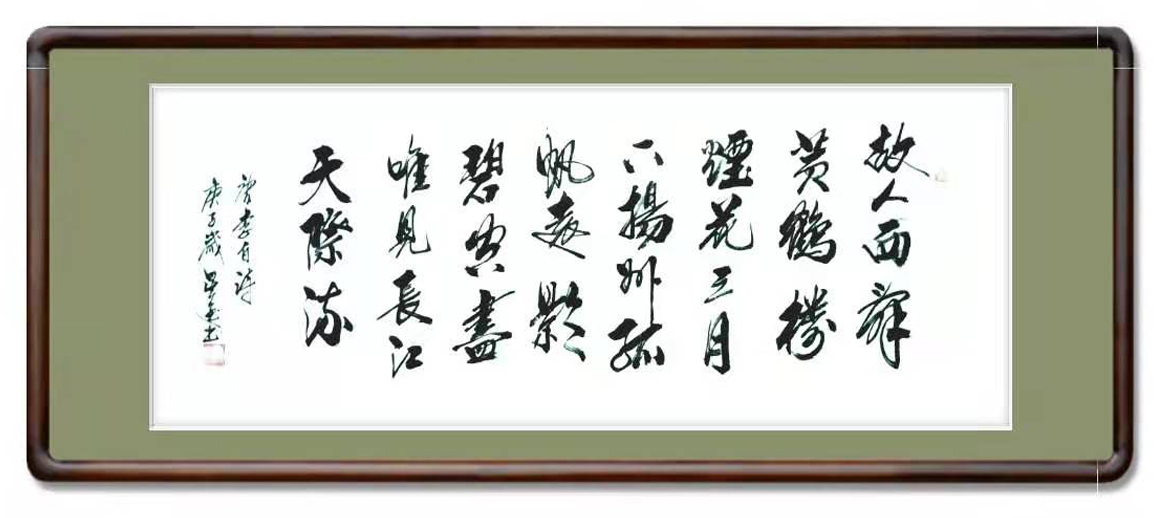 故人西辭
黄鶴樓
煙花三月
下揚州孤
帆遠影
碧空盡
唯見長江
天際流
唐李白詩
庚子歲